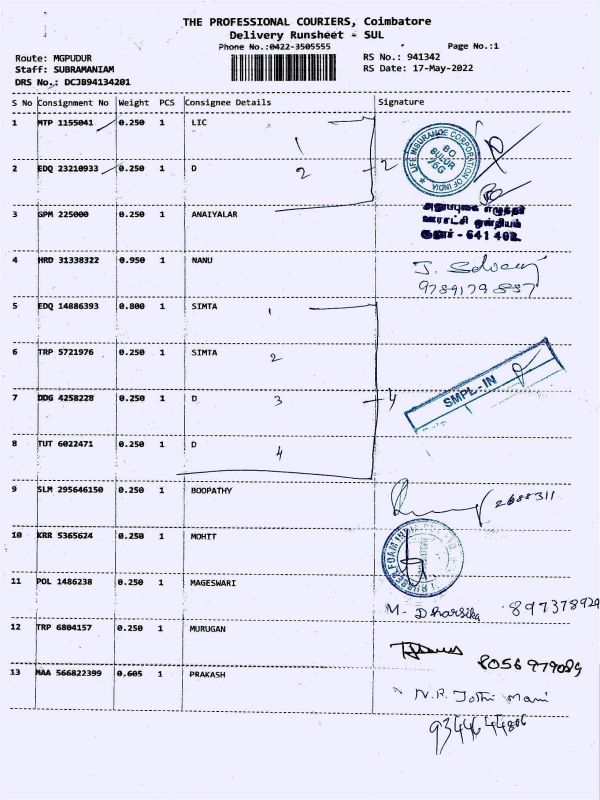 THE PROFESSIONAL COURIERS, Coimbatore
Delivery Runsheet - SUL
Phone No.:0422-3505555
Page No.:1
Route: MGPUDUR
RS No.: 941342
Staff: SUBRAMANIAM
RS Date: 17-May-2022
DRS No.: DCJB94134201
S No Consignment No Weight PCS Consignee Details Signature
1 MTP 1155041 0.250 1 LIC
1
LIFE INSURANCE CORPORATION OF INDIA
BO
SULUR
76G
2 EDQ 23210933 0.250 1 D
2
2
3 GPM 225000 0.250 1 ANAIYALAR
ஊராட்சி ஒன்றியம்
சூலூர் - 641 402.
4 HRD 31338322 0.950 1 NANU
9789179
5 EDQ 14886393 0.800 1 SIMTA
1
6 TRP 5721976 0.250 1 SIMTA
2
7 DDG 4258228 0.250 1 D
3
4
SMPL-IN
8 TUT 6022471 0.250 1 D
4
9 SLM 295646150 0.250 1 BOOPATHY
10 KRR 5365624 0.250 1 MOHIT
RUBBER FOAM
11 POL 1486238 0.250 1 MAGESWARI
M. Dharsika 897378929
12 TRP 6804157 0.250 1 MURUGAN
8056979089
13 MAA 566822399 0.605 1 PRAKASH
N.R. Jothi Mani
9344644806